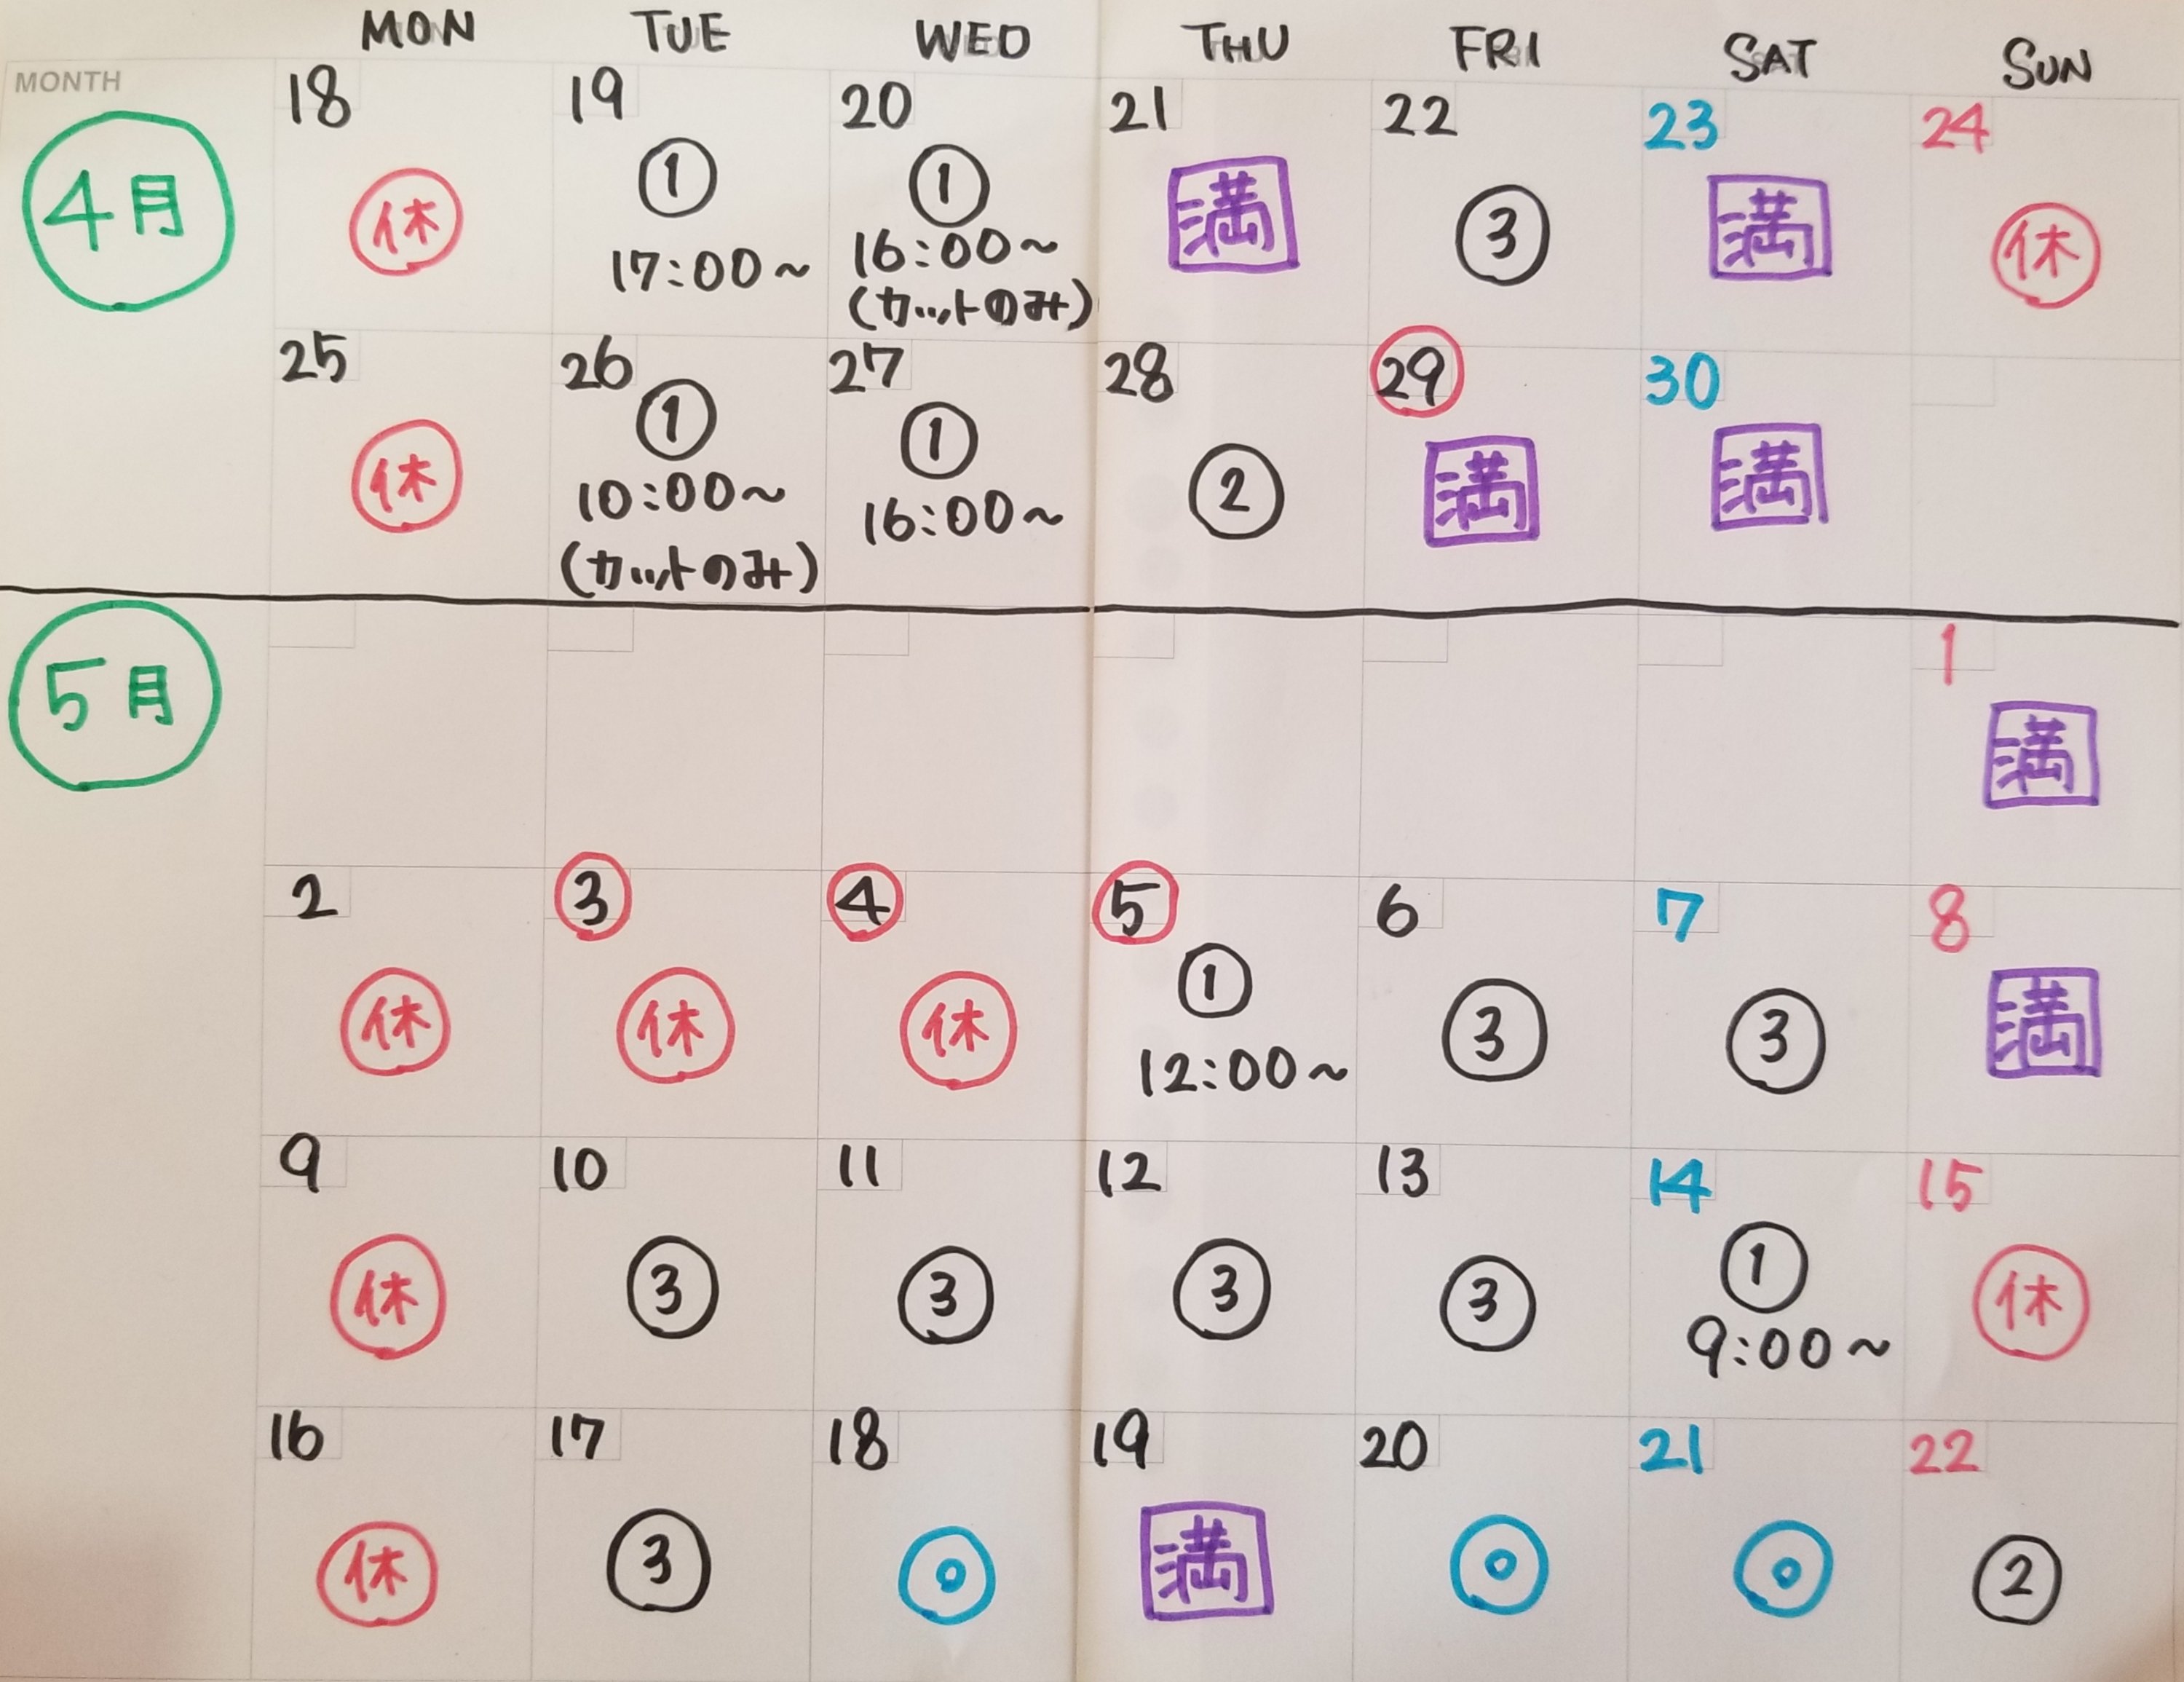 MON TUE WED THU FRI SAT SUN
MONTH
4月
18 19 20 21 22 23 24
休 ① ① 満 ③ 満 休
17:00~ 16:00~
(カットのみ)
25 26 27 28 29 30
休 ① ① ② 満 満
10:00~ 16:00~
(カットのみ)
5月
1
満
2 3 4 5 6 7 8
休 休 休 ① ③ ③ 満
12:00~
9 10 11 12 13 14 15
休 ③ ③ ③ ③ ① 休
9:00~
16 17 18 19 20 21 22
休 ③ ◎ 満 ◎ ◎ ②